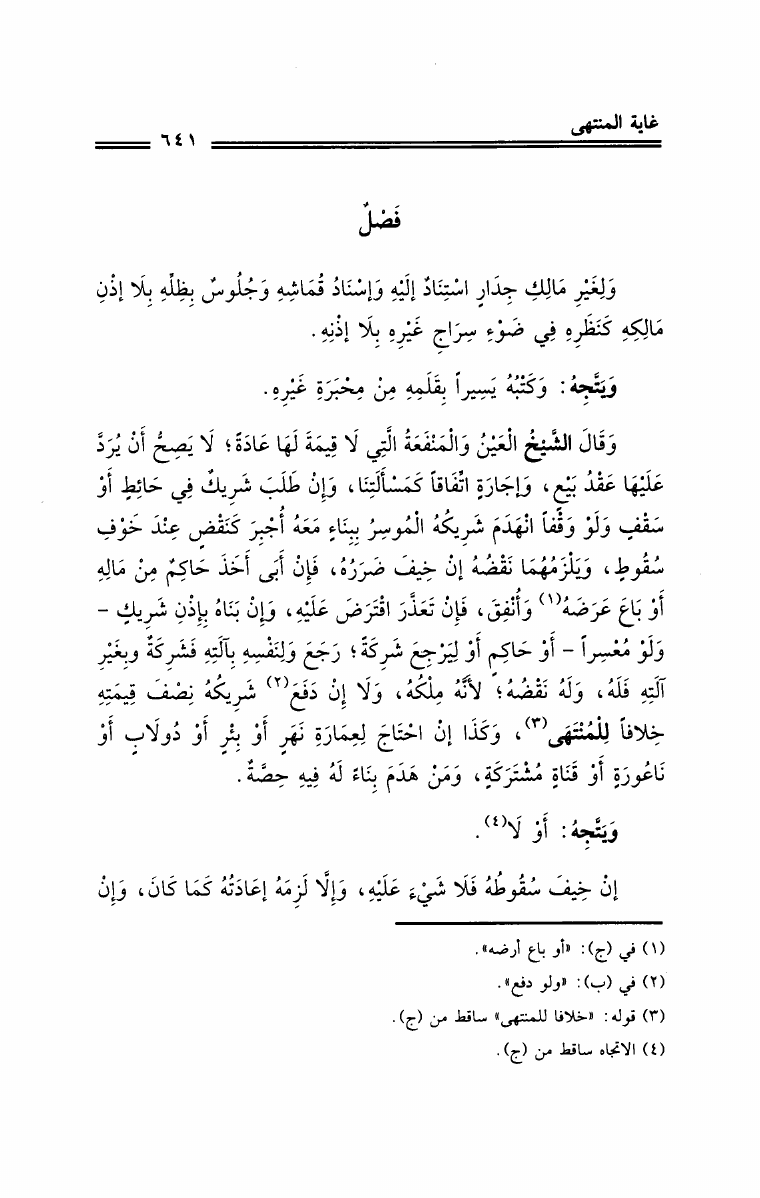 غاية المنتهى
٦٤١
فَصْلٌ
وَلِغَيْرِ مَالِكِ جِدَارٍ اسْتِنَادٌ إلَيْهِ وَإسْنَادُ قُمَاشِهِ وَجُلُوسٌ بِظِلِّهِ بِلَا إذْنِ
مَالِكِهِ كَنَظَرِهِ فِي ضَوْءِ سِرَاجِ غَيْرِهِ بِلَا إذْنِهِ.
وَيَتَّجِهُ: وَكَتْبُهُ يَسِيراً بِقَلَمِهِ مِنْ مِحْبَرَةِ غَيْرِهِ.
وَقَالَ الشَّيْخُ الْعَيْنُ وَالْمَنْفَعَةُ الَّتِي لَا قِيمَةَ لَهَا عَادَةً؛ لَا يَصِحُّ أَنْ يُرَدَّ
عَلَيْهَا عَقْدُ بَيْعٍ، وَإجَارَةٍ اتِّفَاقاً كَمَسْأَلَتِنَا، وَإنْ طَلَبَ شَرِيكٌ فِي حَائِطٍ أَوْ
سَقْفٍ وَلَوْ وَقْفاً انْهَدَمَ شَرِيكُهُ الْمُوسِرُ بِبِنَاءٍ مَعَهُ أُجْبِرَ كَنَقْضٍ عِنْدَ خَوْفِ
سُقُوطٍ، وَيَلْزَمُهُمَا نَقْضُهُ إنْ خِيفَ ضَرَرُهُ، فَإنْ أَبَى أَخَذَ حَاكِمٌ مِنْ مَالِهِ
أَوْ بَاعَ عَرَضَهُ(١) وَأَنْفِقَ، فَإنْ تَعَذَّرَ اقْتَرَضَ عَلَيْهِ، وَإنْ بَنَاهُ بِإذْنِ شَرِيكٍ –
وَلَوْ مُعْسِراً – أَوْ حَاكِمٍ أَوْ لِيَرْجِعَ شَرِكَةً؛ رَجَعَ وَلِنَفْسِهِ بِآلَتِهِ فَشَرِكَةٌ وبِغَيْرِ
آلَتِهِ فَلَهُ، وَلَهُ نَقْضُهُ؛ لأنَّهُ مِلْكُهُ، وَلَا إنْ دَفَعَ(٢) شَرِيكُهُ نِصْفَ قِيمَتِهِ
خِلافاً لِلْمُنْتَهَى(٣)، وَكَذَا إنْ احْتَاجَ لِعِمَارَةِ نَهَرٍ أَوْ بِئْرٍ أَوْ دُولَابٍ أَوْ
نَاعُورَةٍ أَوْ قَنَاةٍ مُشْتَرَكَةٍ، وَمَنْ هَدَمَ بِنَاءً لَهُ فِيهِ حِصَّةٌ.
وَيَتَّجِهُ: أَوْ لَا(٤).
إنْ خِيفَ سُقُوطُهُ فَلَا شَيْءَ عَلَيْهِ، وَإلَّا لَزِمَهُ إعَادَتُهُ كَمَا كَانَ، وَإنْ
(١) في (ج): «أو باع أرضه».
(٢) في (ب): «ولو دفع».
(٣) قوله: «خلافا للمنتهى» ساقط من (ج).
(٤) الاتجاه ساقط من (ج).